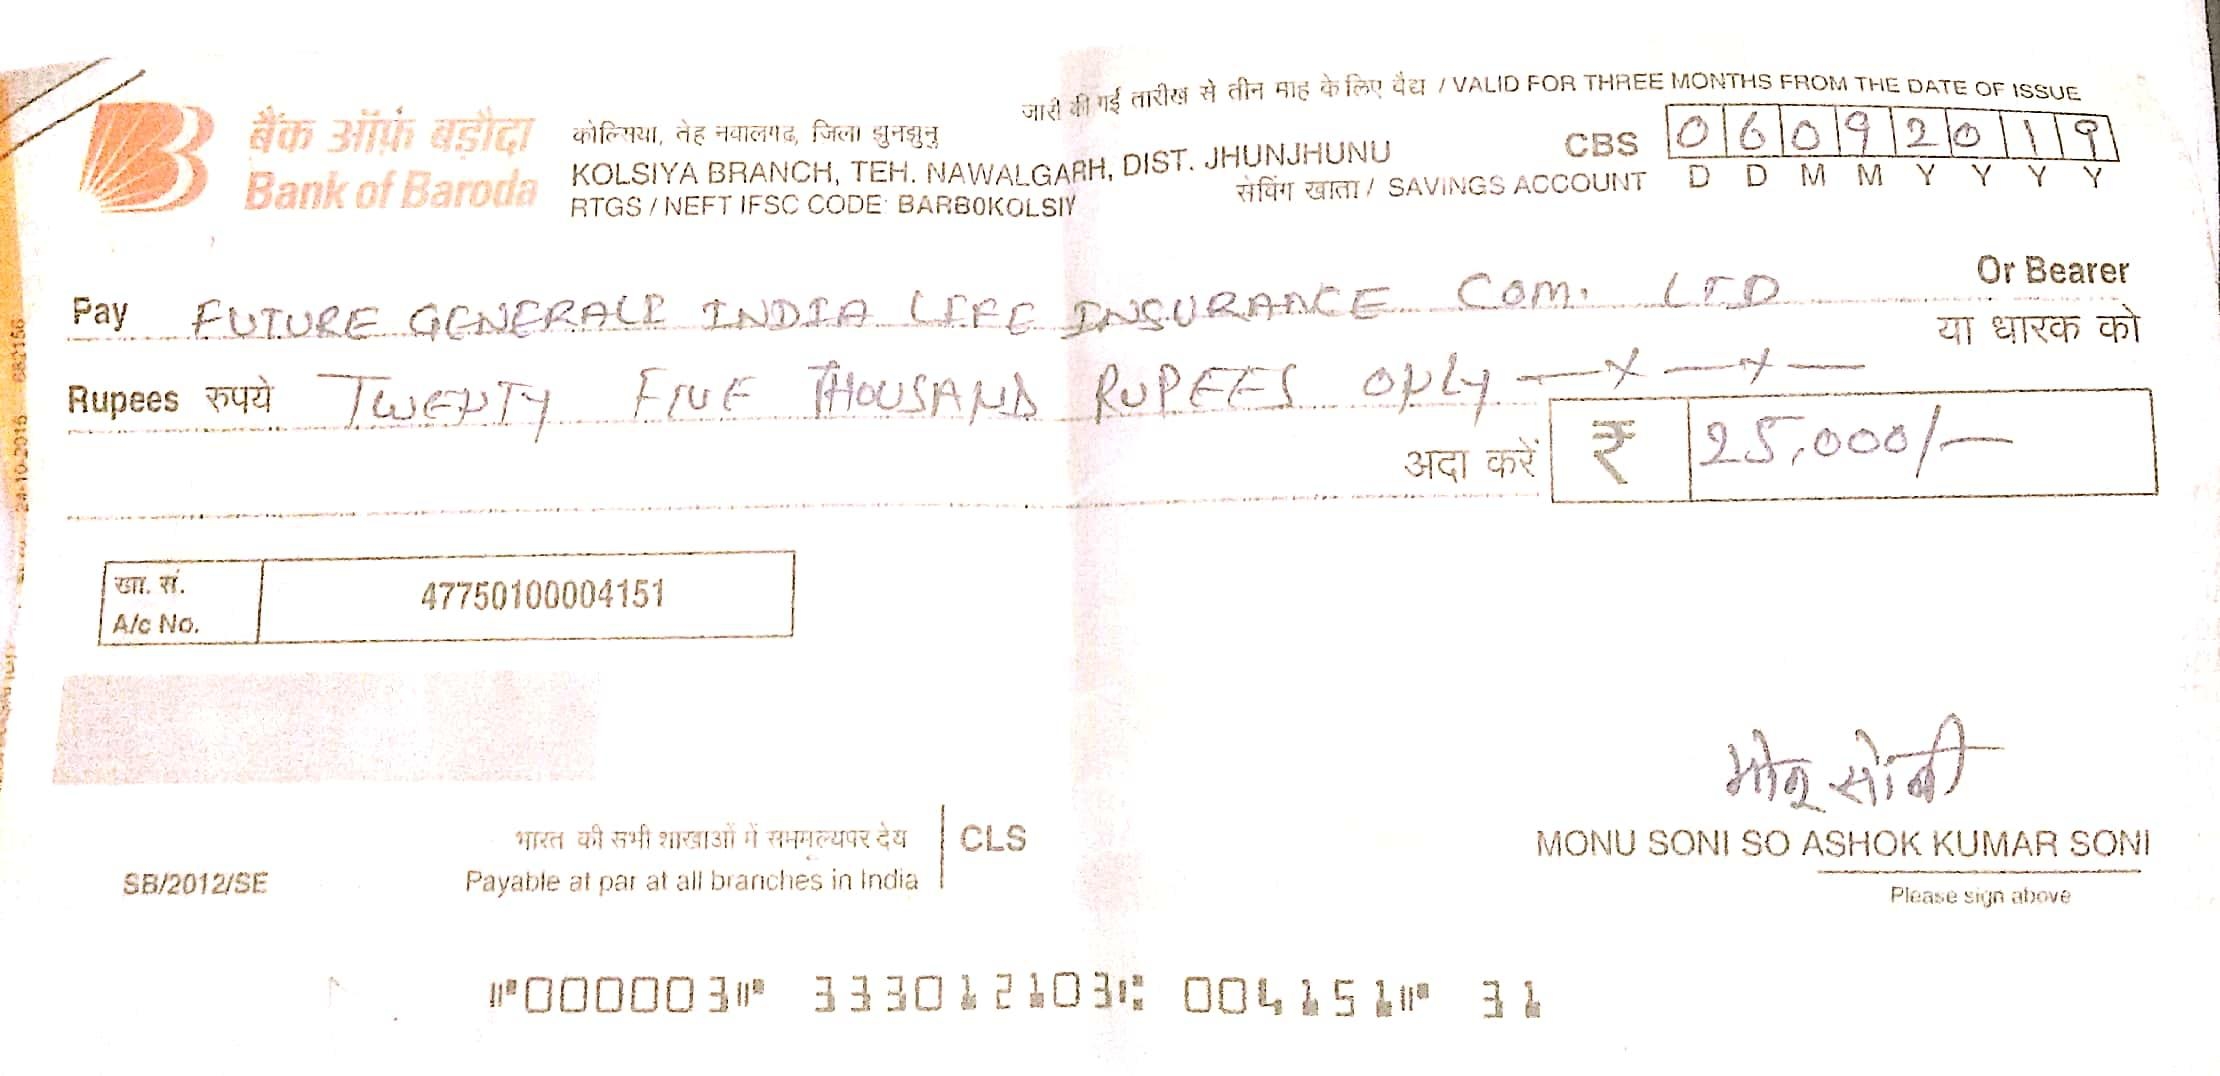 जारी की गई तारीख से तीन माह के लिए वैद्य / VALID FOR THREE MONTHS FROM THE DATE OF ISSUE
बैंक ऑफ़ बड़ौदा
Bank of Baroda
कोल्सिया, तेह नवालगढ, जिला झुनझुनु
KOLSIYA BRANCH, TEH. NAWALGARH, DIST. JHUNJHUNU
RTGS / NEFT IFSC CODE: BARB0KOLSIY
CBS 06092019
सेविंग खाता / SAVINGS ACCOUNT D D M M Y Y Y Y
Pay FUTURE GENERALI INDIA LIFE INSURANCE COM. LTD Or Bearer
या धारक को
Rupees रुपये TWENTY FIVE THOUSAND RUPEES ONLY —x—x—
अदा करें ₹ 25,000/—
खा. सं.
A/c No. 47750100004151
मोनू सोनी
MONU SONI SO ASHOK KUMAR SONI
Please sign above
भारत की सभी शाखाओं में सममूल्यपर देय
Payable at par at all branches in India
CLS
SB/2012/SE
⑈000003⑈ 333012103⑆ 004151⑈ 31